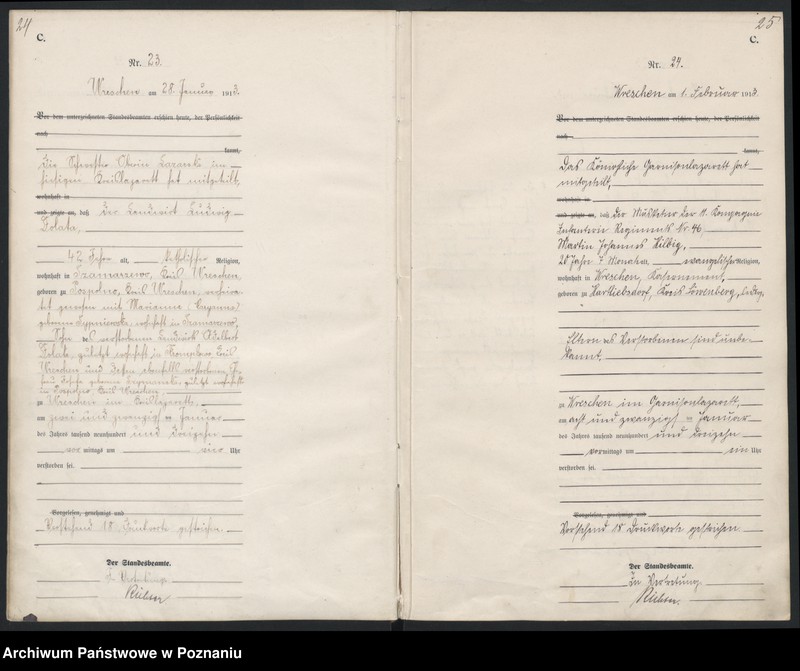 24
C.
Nr. 23.
Wreschen am 28. Januar 1913.
Vor dem unterzeichneten Standesbeamten erschien heute, der Persönlichkeit
nach
kannt,
Die Schwester Oberin Lazarek im
hiesigen Kreislazarett hat mitgeteilt,
wohnhaft in
und zeigte an, daß der Landwirt Ludwig
Golata,
42 Jahre alt, katholischer Religion,
wohnhaft in Szamarzewo, Kreis Wreschen
geboren zu Kreis Wreschen, verheira-
tet gewesen mit Marianna
geborene wohnhaft in Szamarzewo,
Sohn des verstorbenen Landwirts Adalbert
Golata, zuletzt wohnhaft in Kreis
Wreschen und dessen ebenfalls verstorbenen
geborene zuletzt wohnhaft
in Kreis Wreschen,
zu Wreschen im Kreislazarett,
am zwei und zwanzigsten Januar
des Jahres tausend neunhundert und dreizehn
vormittags um vier Uhr
verstorben sei.
Vorgelesen, genehmigt und
Vorstehend 18 Druckworte gestrichen.
Der Standesbeamte.
In Vertretung
Richter
25
C.
Nr. 24.
Wreschen am 1. Februar 1913.
Vor dem unterzeichneten Standesbeamten erschien heute, der Persönlichkeit
nach
kannt,
Das Königliche Garnisonlazarett hat
mitgeteilt,
wohnhaft in
und zeigte an, daß der Musketier der 11. Kompagnie
Infanterie Regiments Nr 46
Martin Johannes Hilbig,
20 Jahr 7 Monate alt, evangelischer Religion,
wohnhaft in Wreschen, Kasernement,
geboren zu Hartliebsdorf, Kreis Löwenberg, ledig,
Eltern des Verstorbenen sind unbe-
kannt,
zu Wreschen im Garnisonlazarett,
am acht und zwanzigsten Januar
des Jahres tausend neunhundert und dreizehn
vormittags um ein Uhr
verstorben sei.
Vorgelesen, genehmigt und
Vorstehend 18 Druckworte gestrichen
Der Standesbeamte.
In Vertretung
Richter.
Archiwum Państwowe w Poznaniu